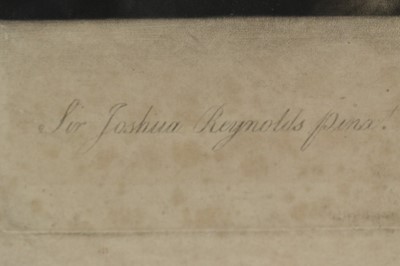 Sir Joshua Reynolds pinx.t